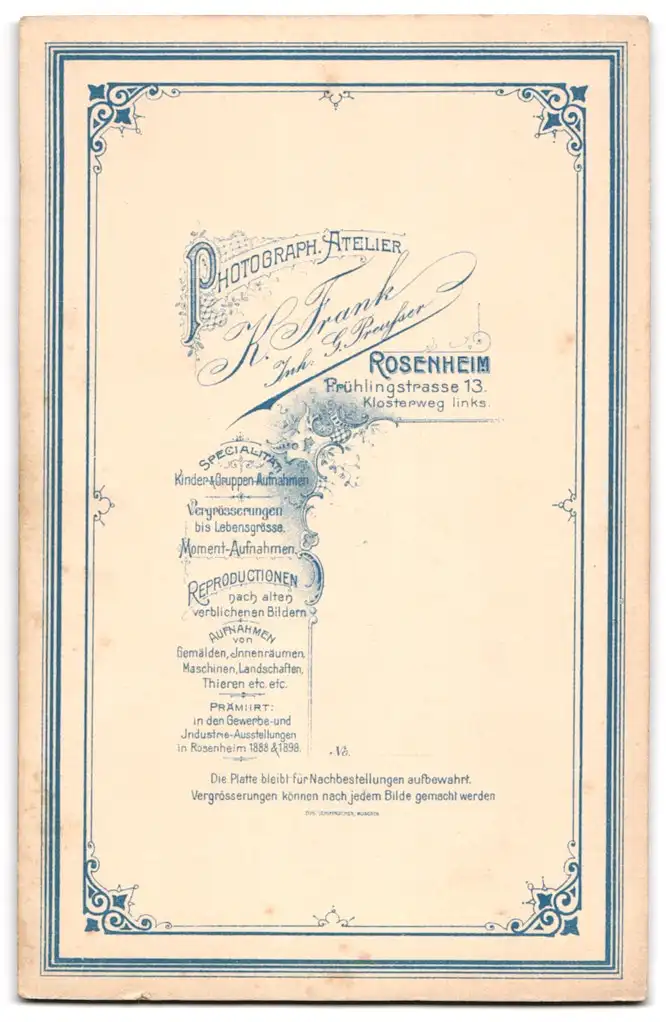 PHOTOGRAPH. ATELIER
K. Frank
Inh. G. Preußer
ROSENHEIM
Frühlingstrasse 13.
Klosterweg links.
SPECIALITÄT
Kinder & Gruppen-Aufnahmen
Vergrösserungen
bis Lebensgrösse.
Moment-Aufnahmen.
REPRODUCTIONEN
nach alten
verblichenen Bildern
AUFNAHMEN
von
Gemälden, Jnnenräumen,
Maschinen, Landschaften,
Thieren etc. etc.
PRÄMIIRT:
in den Gewerbe-und
Jndustrie-Ausstellungen
in Rosenheim 1888 & 1898.
No.
Die Platte bleibt für Nachbestellungen aufbewahrt.
Vergrösserungen können nach jedem Bilde gemacht werden